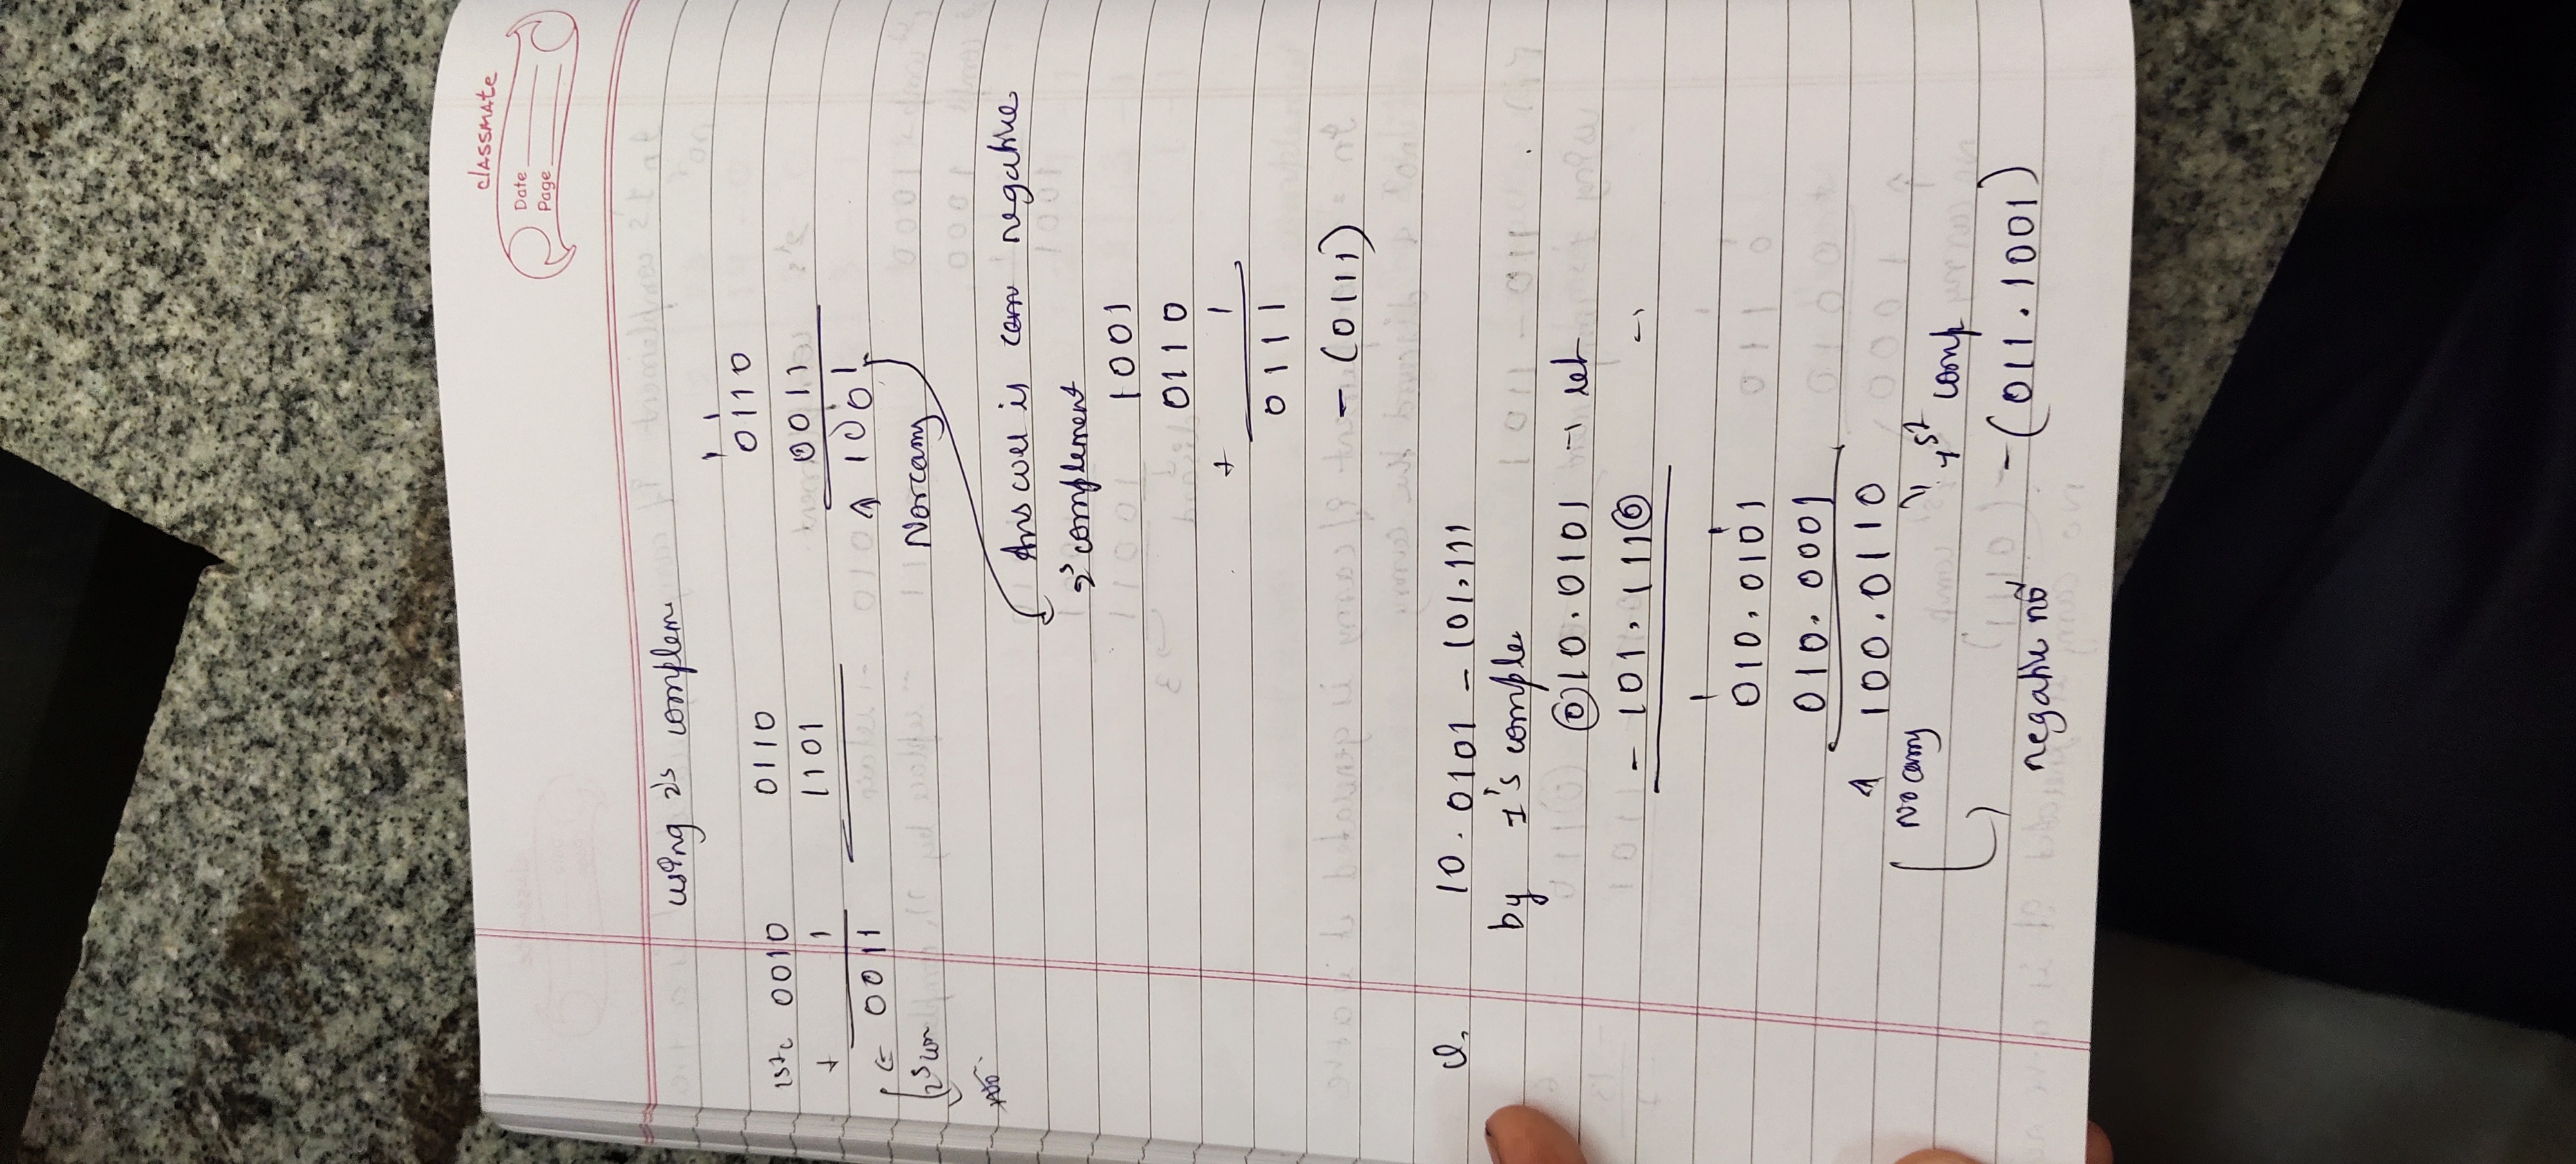 classmate
Date
Page
using 2's complem
1st c 0010
+ 1
0011
2's com
No
0110
1101
0110
0011
1001
No carry
Answer is com negative
2's complement
1001
0110
+ 1
0111
- (0111)
Q. 10.0101 - 101.111
by 1's comple
010.0101 → let
- 101.1110 →
1 1
010.0101
010.0001
100.0110
No carry
1st comp
negative no - (011.1001)